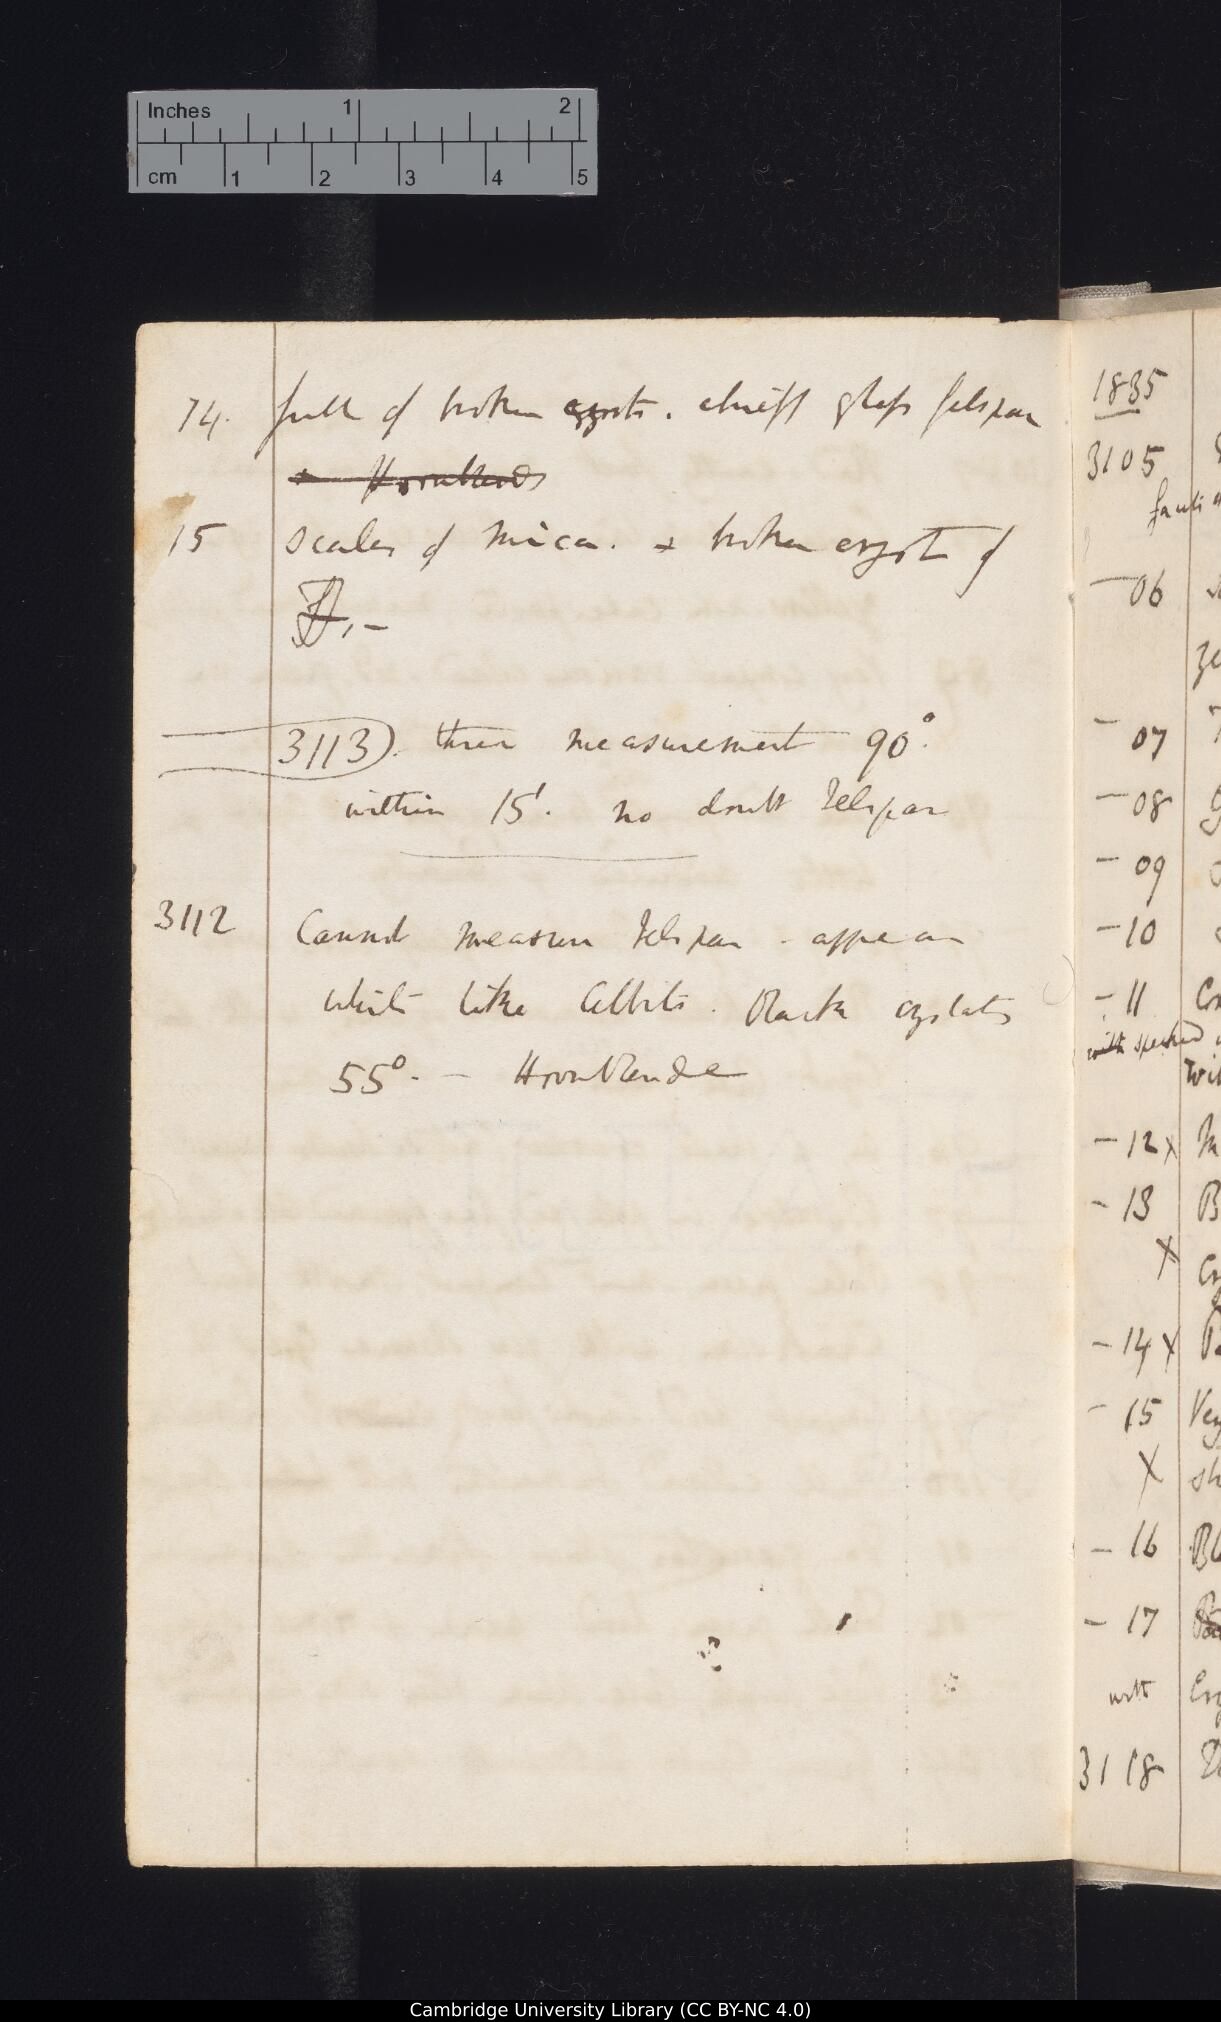 Inches 1 2
cm 1 2 3 4 5
14. full of broken crysts. chiefly glassy felspar
+ Hornblende
15 scales of mica. + broken cryst of
3113). three measurement 90°.
within 15'. no doubt Felspar
3112 Cannot measure Felspar - appear
white like Albite. Black crystals
55°. - Hornblende
1835
3105
- 06
- 07
- 08
- 09
- 10
- 11
with specked
- 12 x
- 13
x
- 14 x
- 15
x
- 16
- 17
with
3118
Cambridge University Library (CC BY-NC 4.0)